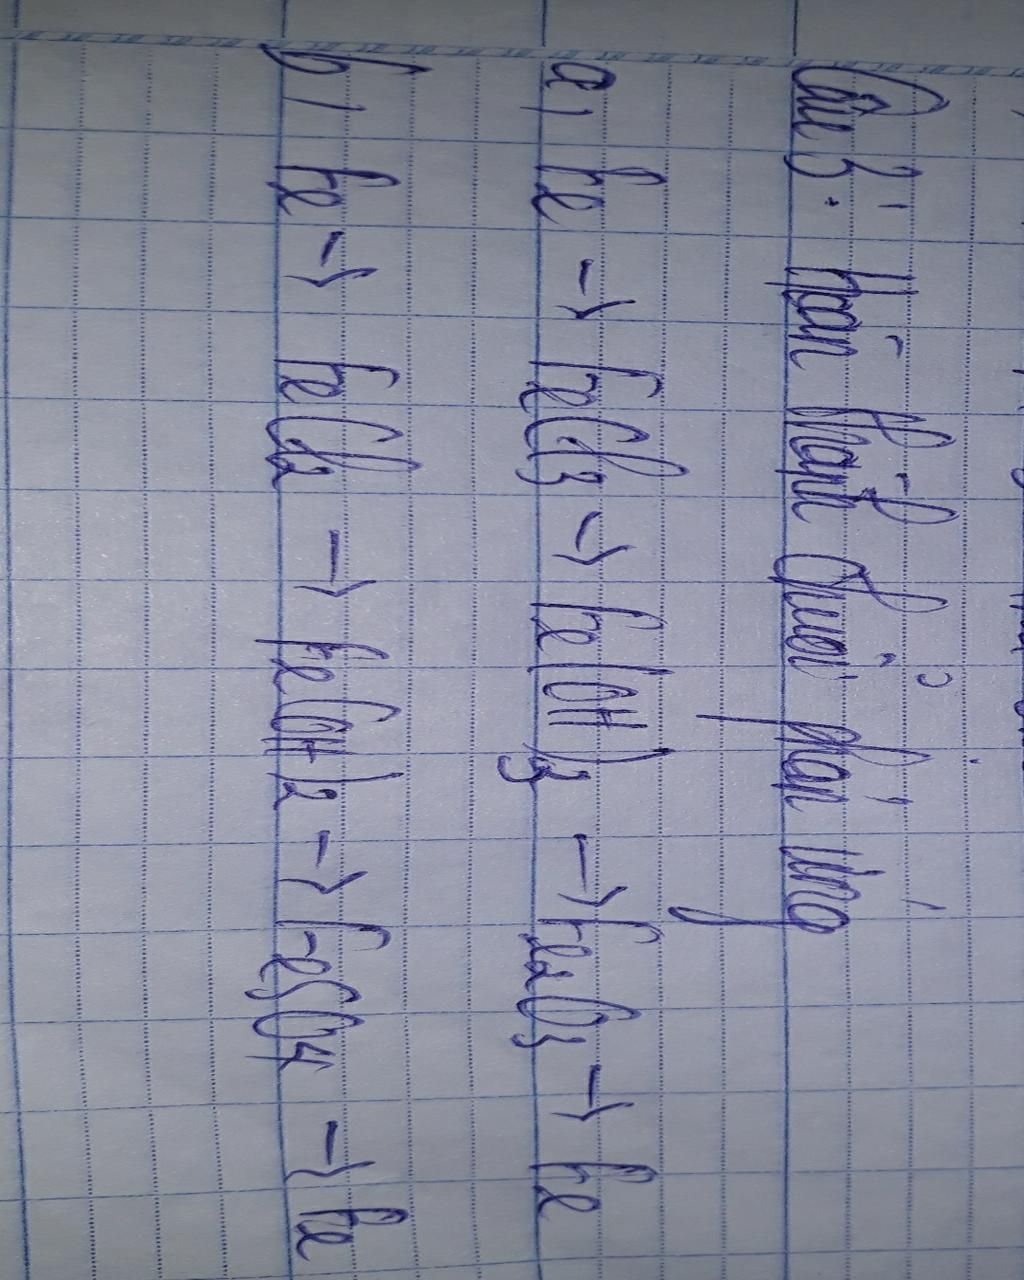 Câu 3: Hoàn thành chuỗi phản ứng
a, Fe → FeCl3 → Fe(OH)3 → Fe2O3 → Fe
b, Fe → FeCl2 → Fe(OH)2 → FeSO4 → Fe